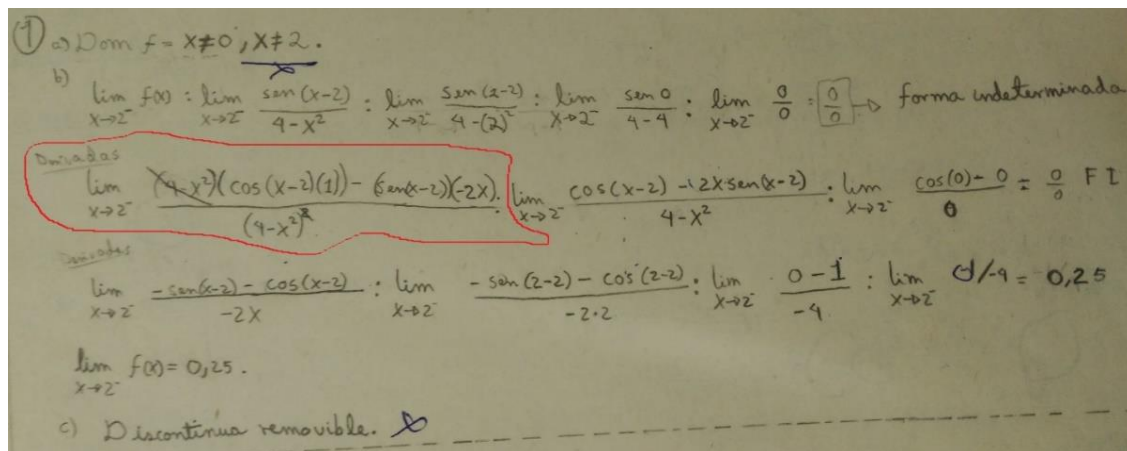 ① a) Dom f = x≠0, x≠2.
b) lim x→2⁻ f(x) : lim x→2⁻ sen(x-2)/4-x² : lim x→2⁻ sen(2-2)/4-(2)² : lim x→2⁻ sen 0/4-4 : lim x→2⁻ 0/0 = 0/0 → forma indeterminada
Derivadas
lim x→2⁻ (4-x²)(cos(x-2)(1)) - (sen(x-2))(-2x)/(4-x²)² : lim x→2⁻ cos(x-2) -(2x sen(x-2)/4-x² : lim x→2⁻ cos(0) - 0/0 = 0/0 F I
Derivadas
lim x→2⁻ -sen(x-2) - cos(x-2)/-2x : lim x→2⁻ -sen(2-2) - cos(2-2)/-2·2 : lim x→2⁻ 0-1/-4 : lim x→2⁻ /-4 = 0,25
lim x→2⁻ f(x) = 0,25.
c) Discontinua removible.